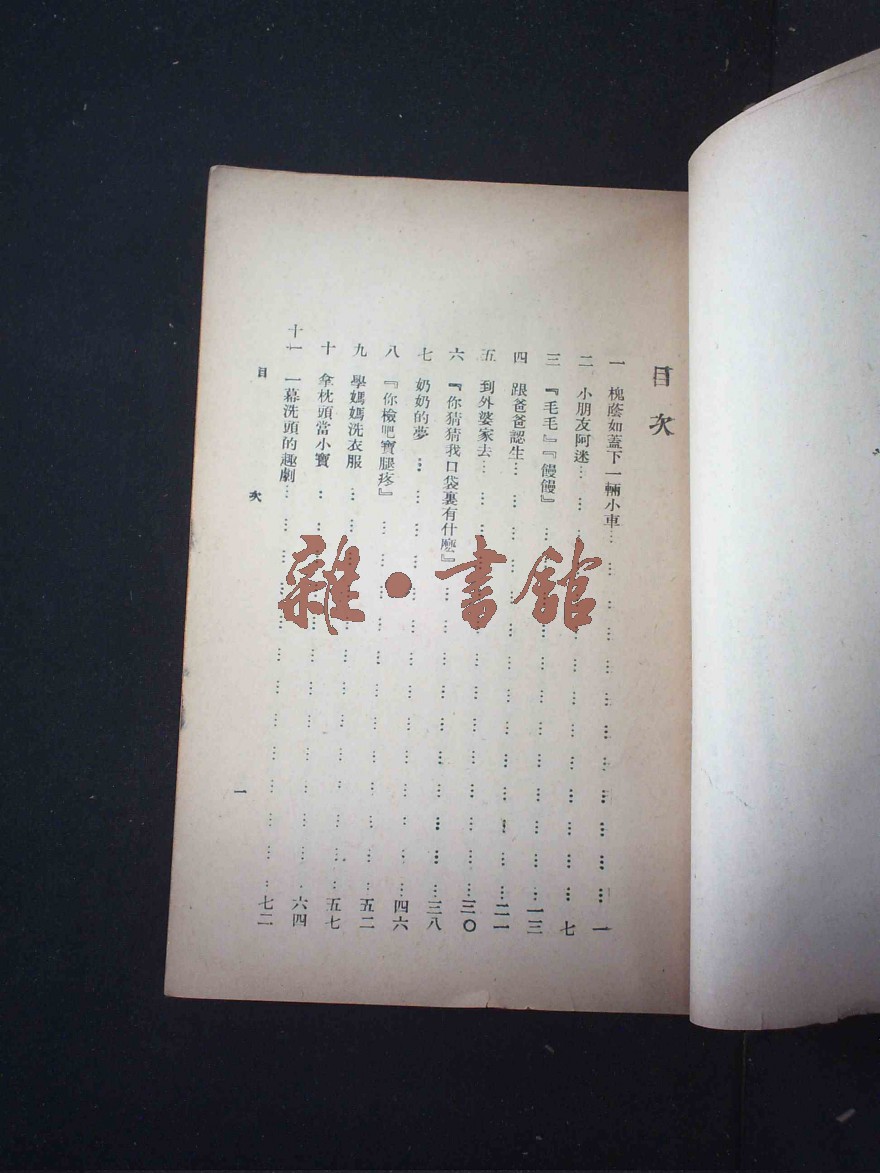 目次
一 槐蔭如蓋下一輛小車………………一
二 小朋友阿迷………………七
三 『毛毛』『饅饅』………………一三
四 跟爸爸認生………………二一
五 到外婆家去………………三〇
六 『你猜猜我口袋裏有什麼』………………三八
七 奶奶的夢………………四六
八 『你檢吧寶腿疼』………………五二
九 學媽媽洗衣服………………五七
十 拿枕頭當小寶………………六四
十一 一幕洗頭的趣劇………………七二
目次
一
雜·書館